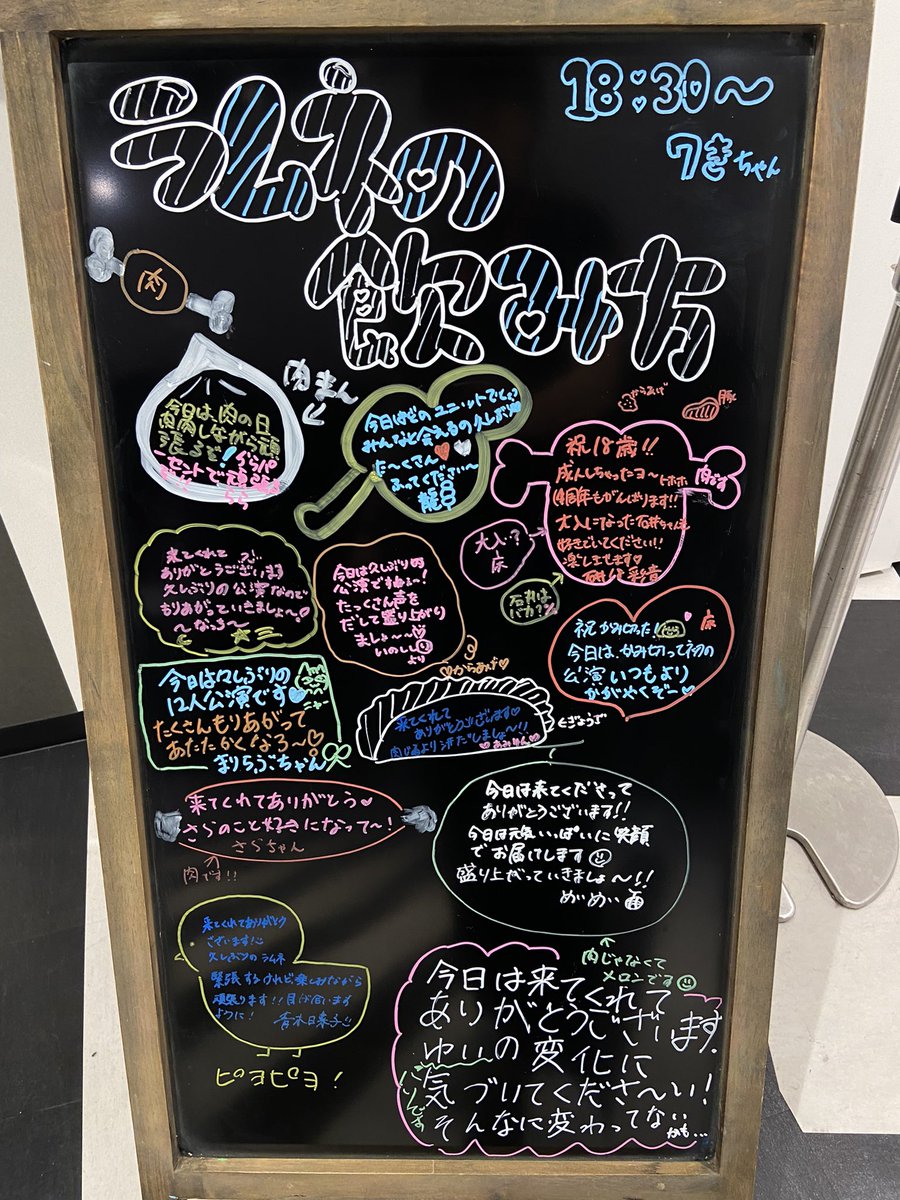 18:30〜
ラムネの
飲み方
7きちゃん
肉
肉まん
今日は、肉の日
しながら頑
張るぞ!
今日はどのユニットでも
みんなと会えるの久しぶり
たくさん
ふってください〜
豚
祝18歳!!
成人しちゃったヨ〜トホホ
4周年もがんばります!!
大人になった石井ちゃんも
好きでいてください!!
楽しませます♡
石井彩音
肉です
大人?
床
石井は
バカ?
来てくれて
ありがとうございます
久しぶりの公演なので
もりあがっていきましょ〜!
〜なっち〜
今日は久しぶりの
公演ですねぇ〜!
たっくさん声を
だして盛り上がり
ましょ〜〜♡
いのしし
より
♡からあげ♡
祝 かみ切った!
床
今日は、かみ切って初の
公演 いつもより
かがやくぞー♡
今日は久しぶりの
12人公演です♡
たくさんもりあがって
あたたかくなろ〜♡
まりちゅぶちゃん
来てくれて
ありがとうございます♡
肉じるより汁だしましょ〜!!
♡あみゅん♡
くぎょうざ
来てくれてありがとう♡
さらのこと好きになって〜!
さらちゃん
肉です!!
今日は来てくださって
ありがとうございます!!
今日は元気いっぱいに笑顔
でお届けします
盛り上がっていきましょ〜!!
めいめい
肉じゃなくて
メロンです
来てくれてありがとう
ございます!
久しぶりのラムネ
緊張するけれど楽しみながら
頑張ります!!目が合います
ように!
青木日菜子
ヒヨコ!
今日は来てくれて
ありがとうございます.
ゆいの変化に
気づいてくださ〜い!
そんなに変わってない
かも...